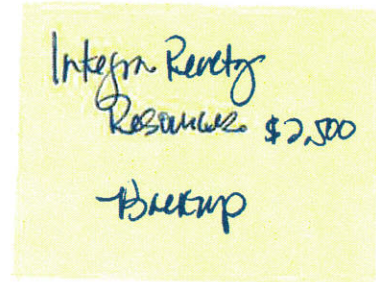 Integra Realty
Resources $2,500
Backup